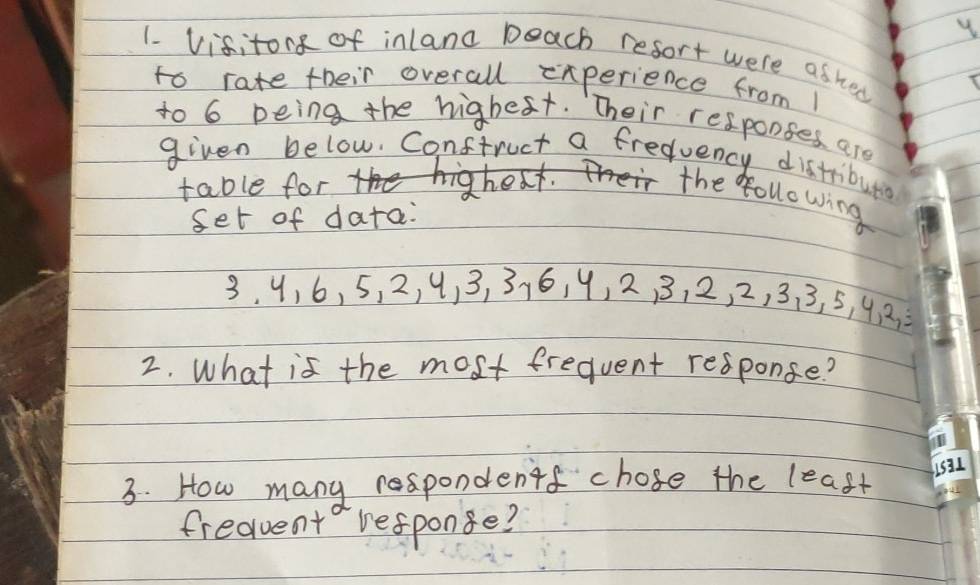 1- Visitors of inland beach resort were asked
to rate their overall experience from 1
to 6 being the highest. Their responses are
given below. Construct a frequency distribution
table for the highest. Their the following
set of data:
3, 4, 6, 5, 2, 4, 3, 3, 6, 4, 2, 3, 2, 2, 3, 3, 5, 4, 2, 3
2. What is the most frequent response?
3. How many respondents chose the least
frequent response?
TEST